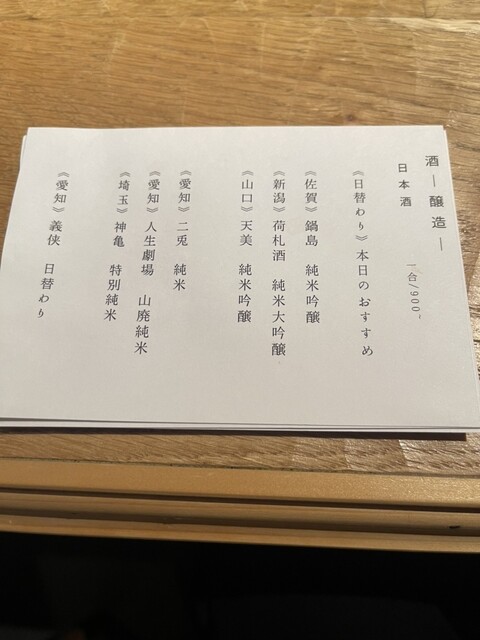 酒―醸造―
日本酒 一合/900~
《日替わり》本日のおすすめ
《佐賀》鍋島 純米吟醸
《新潟》荷札酒 純米大吟醸
《山口》天美 純米吟醸
《愛知》二兎 純米
《愛知》人生劇場 山廃純米
《埼玉》神亀 特別純米
《愛知》義侠 日替わり